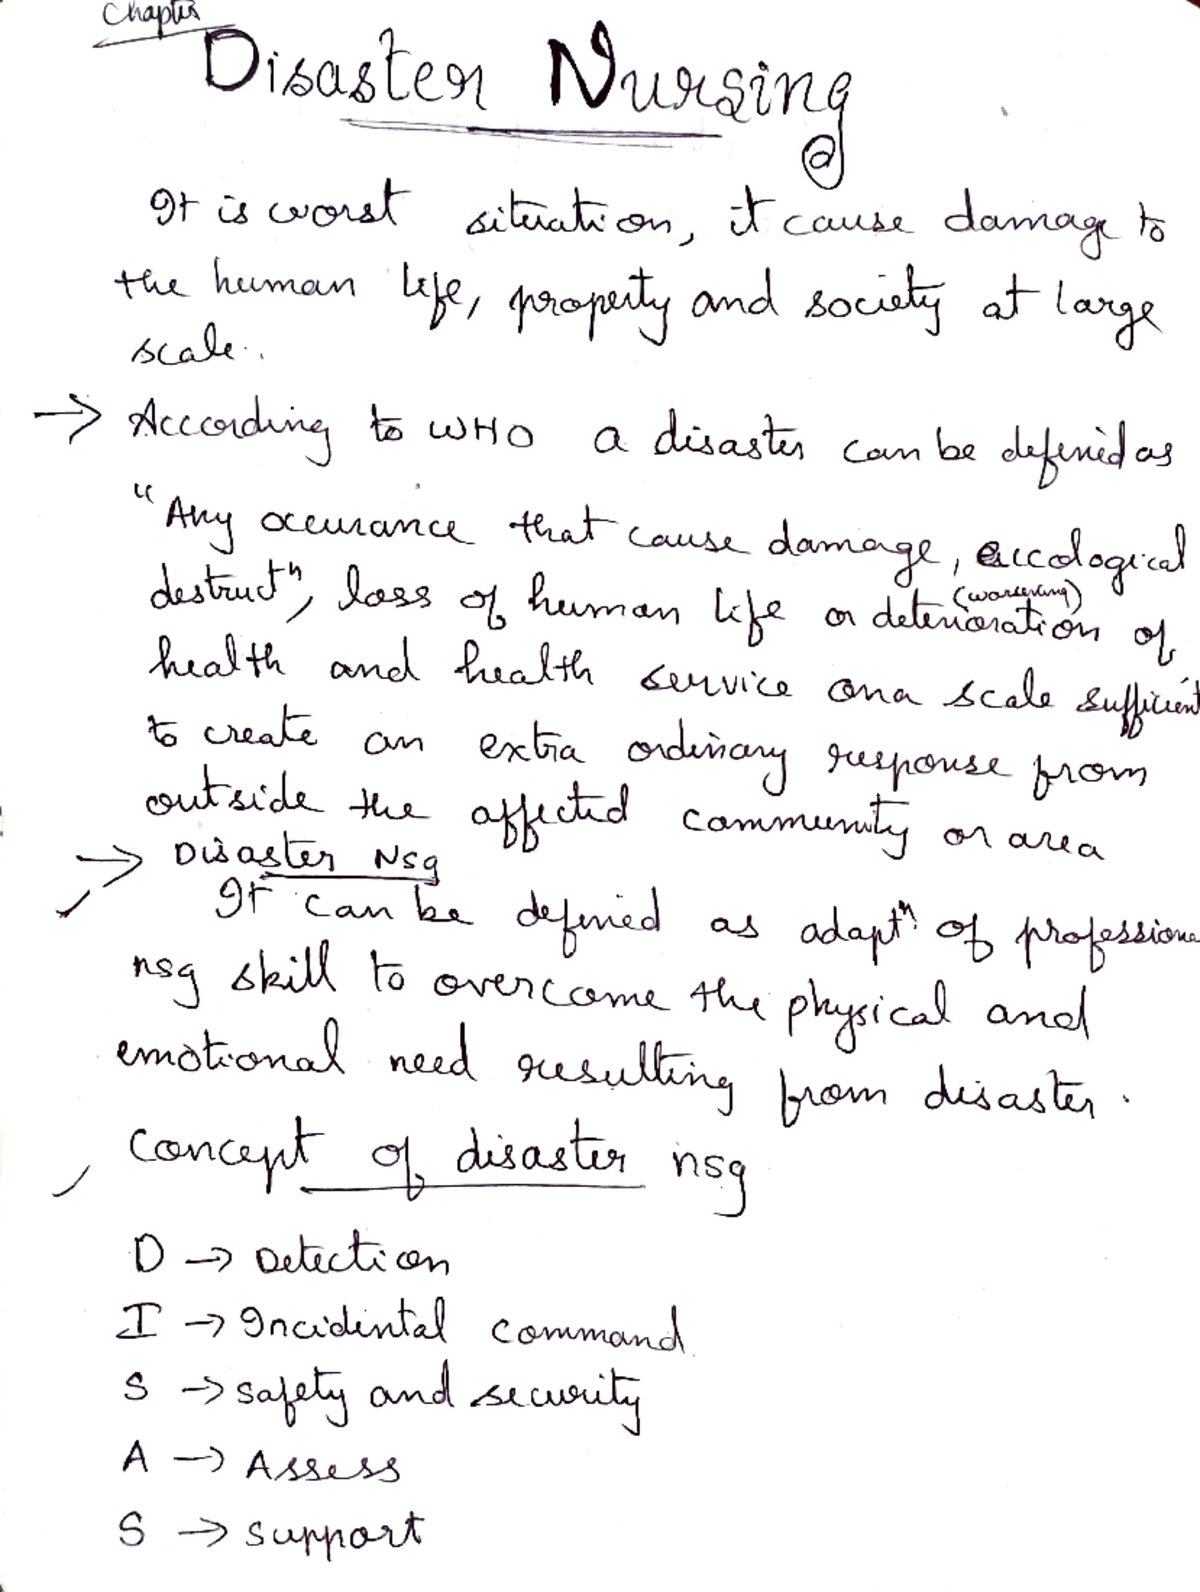 Chapter
Disaster Nursing
It is worst situation, it cause damage to
the human life, property and society at large
scale.
→ According to WHO a disaster can be defined as
"Any occurance that cause damage, eccological
destructⁿ, loss of human life or deterioration of
(worsening)
health and health service on a scale sufficient
to create an extra ordinary response from
outside the affected community or area
→ Disaster Nsg
It can be defined as adaptⁿ of professiona
nsg skill to overcome the physical and
emotional need resulting from disaster.
Concept of disaster nsg
D → Detection
I → Incidental command
S → safety and security
A → Assess
S → support